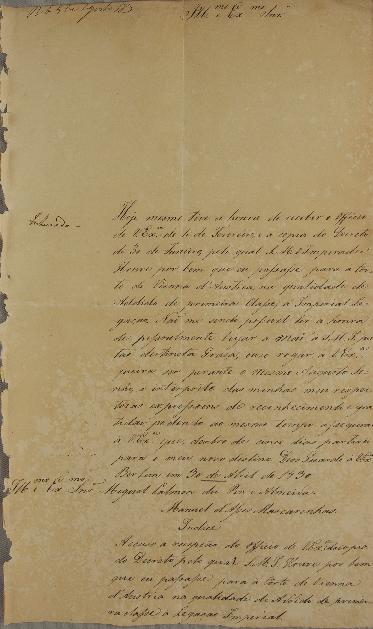 Illmo e Exmo Snr
Inteirado
Hoje mesmo tive a honra de receber o Officio
de V Exa de 10 de Fevereiro, e a copia do Decreto
de 30 de Janeiro, pelo qual S. M. o Imperador
Houve por bem que eu passasse, para a Cor-
te de Vienna d'Austria, na qualidade de
Addido de primeira Classe, a Imperial Le-
gação. Não me sendo possivel ter a honra
de pessoalmente beijar a Mão a S. M. I. por
tão distincta Graça, ouso rogar a V Exa
queira ser perante o mesmo Augusto Se-
nhor, o interprete das minhas mui respei-
tosas expressoens de reconhecimento e gra-
tidão, podendo ao mesmo tempo assegurar
a V Exa que, dentro de cinco dias partirei
para o meu novo destino. Deos Guarde a V Exa
Berlim em 30 de Abril de 1830
Illmo e Exmo Snr Miguel Calmon du Pin e Almeida.
Manuel d'Assis Mascarenhas.
Indice
Accuso a recepção do Officio de V Exa e da copia
do Decreto pelo qual S. M. I. Houve por bem
que eu passasse para a Corte de Vienna
d'Austria na qualidade de Addido de primei-
ra classe a Legação Imperial.